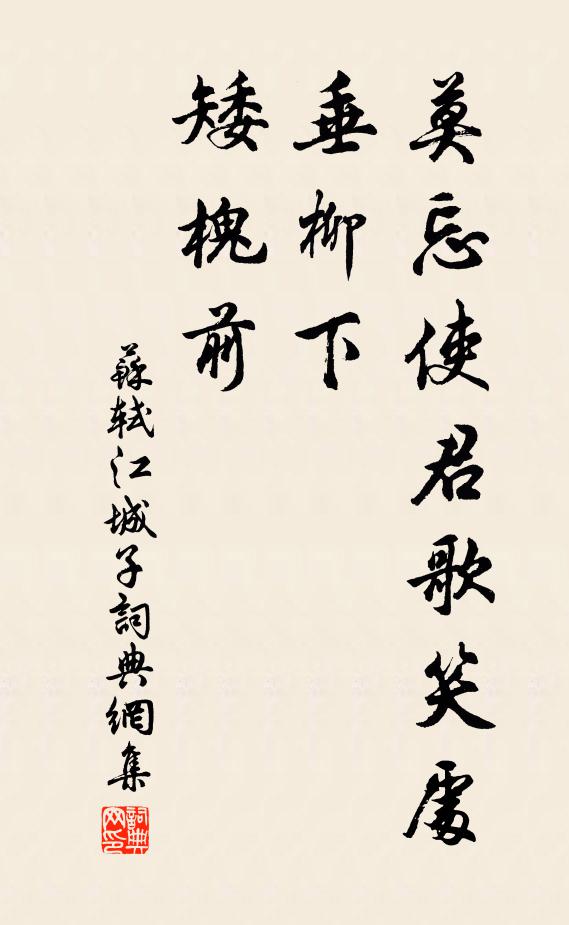 莫忘使君歌笑處
垂柳下
矮槐前
蘇軾江城子詞典網集
詞典
网印